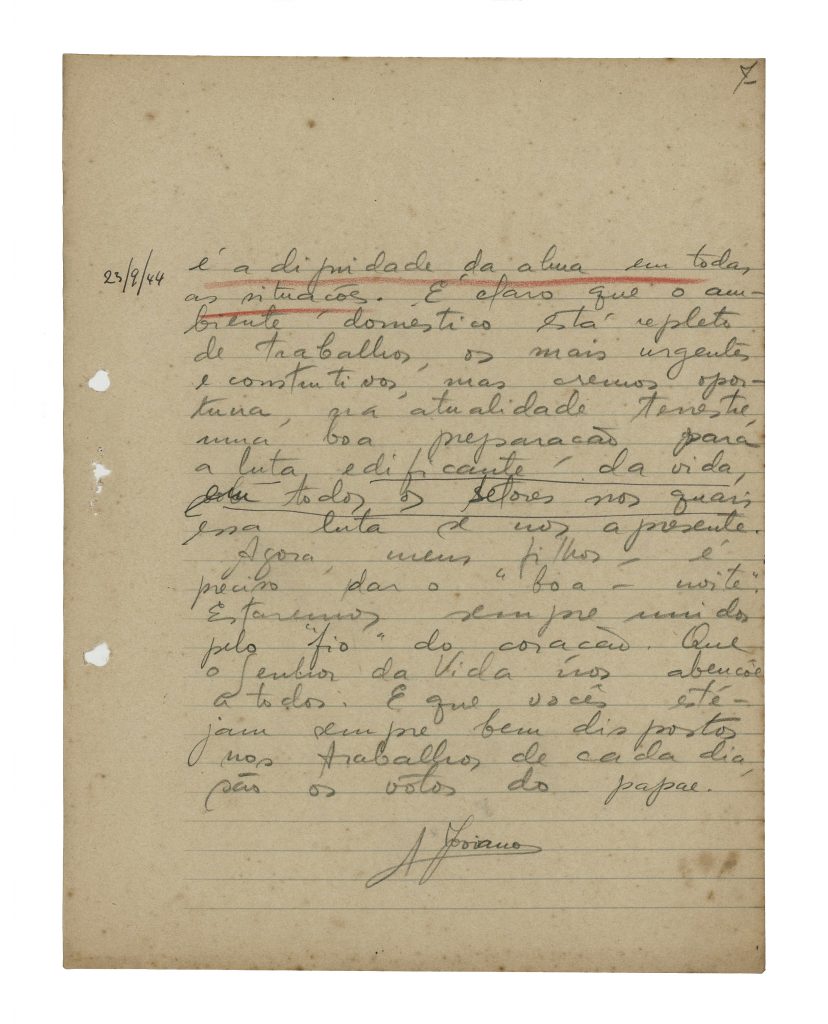 7
23/9/44
é a dignidade da alma em todas
as situações. É claro que o am-
biente doméstico está repleto
de trabalhos, os mais urgentes
e construtivos, mas cremos opor-
tuna, na atualidade terrestre
uma boa preparação para
a luta edificante da vida,
em todos os setores nos quais
essa luta se nos apresente.
Agora, meus filhos, é
preciso dar o "boa-noite".
Estaremos sempre unidos
pelo "fio" do coração. Que
o Senhor da Vida nos abençôe
a todos. E que vocês esté-
jam sempre bem dispostos
nos trabalhos de cada dia,
são os vótos do papae.
A Joviano